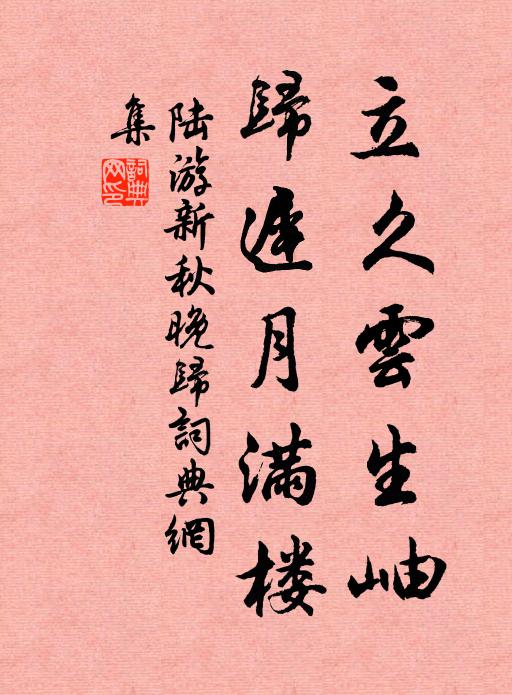 立久雲生岫
歸遲月满楼
陆游新秋晚歸詞典網
集
詞典网印